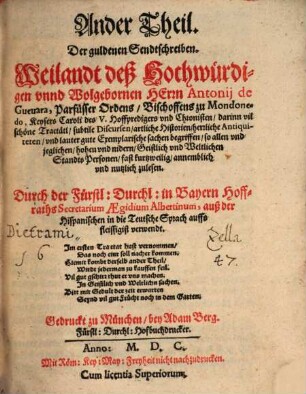 Ander Theil.
Der guldenen Sendtschreiben.
Weilandt deß Hochwürdi-
gen vnnd Wolgebornen HErrn Antonij de
Guevara, Parfüsser Ordens / Bischoffens zu Mondone-
do, Keysers Caroli des V. Hoffpredigers vnd Chronisten / darinn vil
schöne Tractätl / subtile Discursen / artliche Historien / herrliche Antiqui-
teten / vnd lauter gute Exemplarische sachen begriffen / so allen vnd
jeglichen / hohen vnd nidern / Geistlich vnd Weltlichen
Standts Personen / fast kurtzweilig / annemblich
vnd nutzlich zulesen.
Durch der Fürstl: Durchl: in Bayern Hoff-
raths Secretarium Ægidium Albertinum, auß der
Hispanischen in die Teutsche Sprach auffs
fleissigist verwendt.
Im ersten Tractat hast vernommen /
Das noch eins soll nacher kommen /
Dietrami
Zella
Wirdt jederman zu kauffen feil.
16
47.
Vil gut gschirr thut er vns machen.
In Geistlich vnd Weltlichn sachen.
Bitt mit Gedult der zeit erwarten
Seynd vil gut Frücht noch in dem Garten.
Gedruckt zu München / bey Adam Berg.
Fürstl: Durchl: Hofbuchdrucker.
Anno: M. D. C.
Mit Röm: Key: May: Freyheit nicht nachzudrucken.
Cum licentia Superiorum.